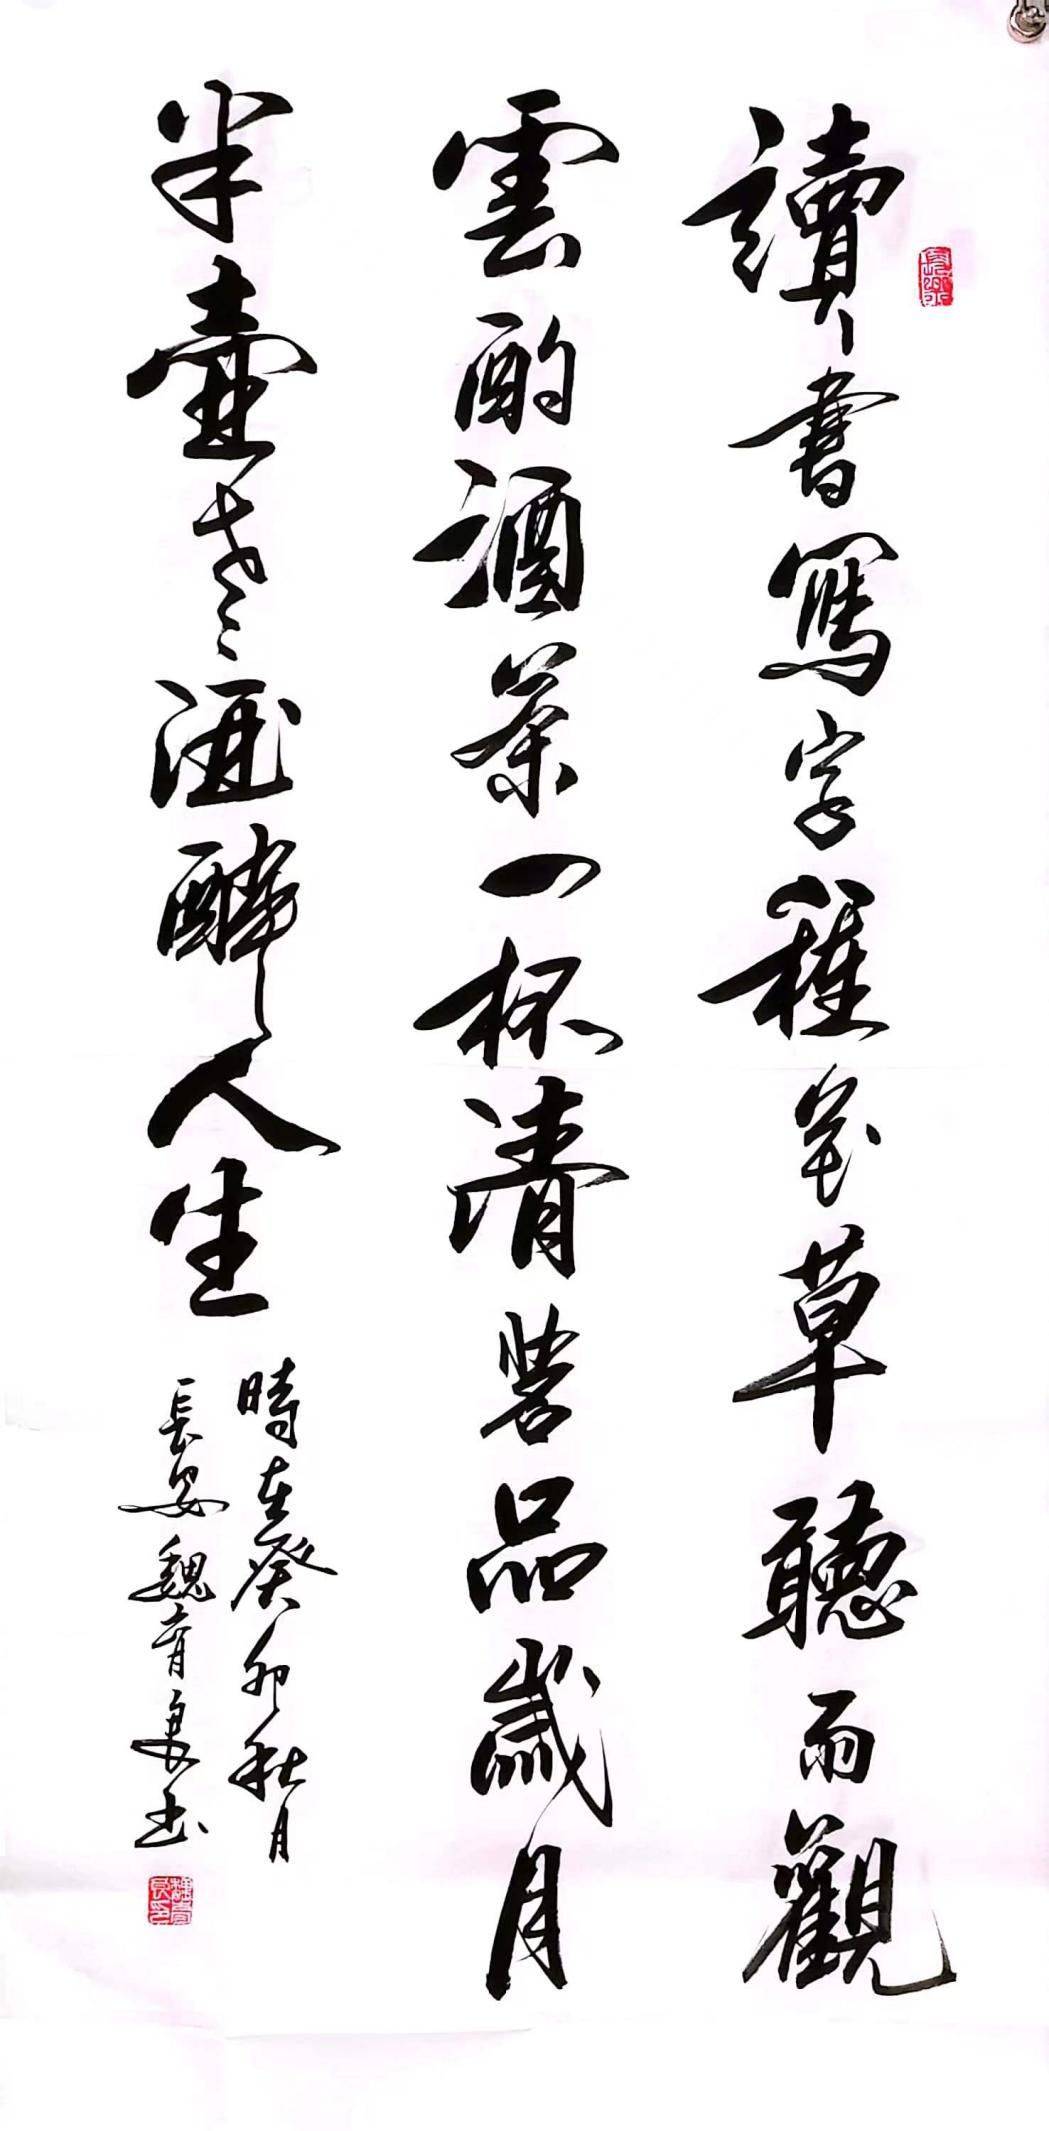 讀書寫字種花草聽雨觀
雲酌酒茶一杯清茗品歲月
半壺老酒醉人生
時在癸卯秋月
長安魏育良書